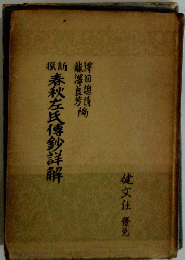 澤田總清
藤澤良芳 編
新撰
春秋左氏傳鈔詳解
健文社 發兌